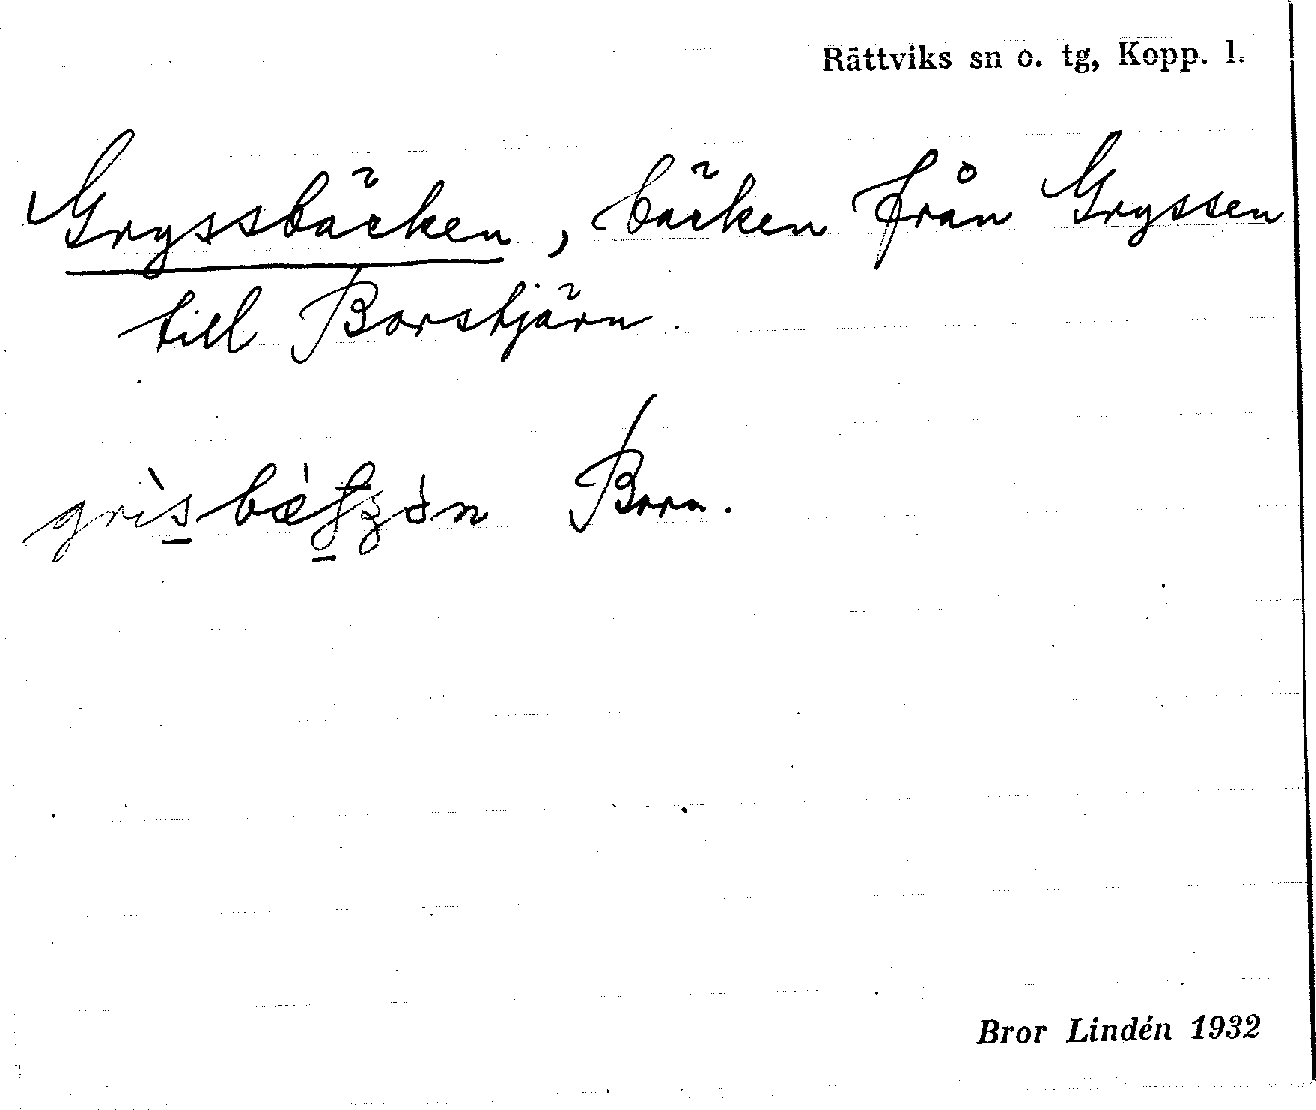 Rättviks sn o. tg, Kopp. l.
Gryssbäcken, bäcken från Gryssen
till Borstjärn.
Born.
Bror Lindén 1932